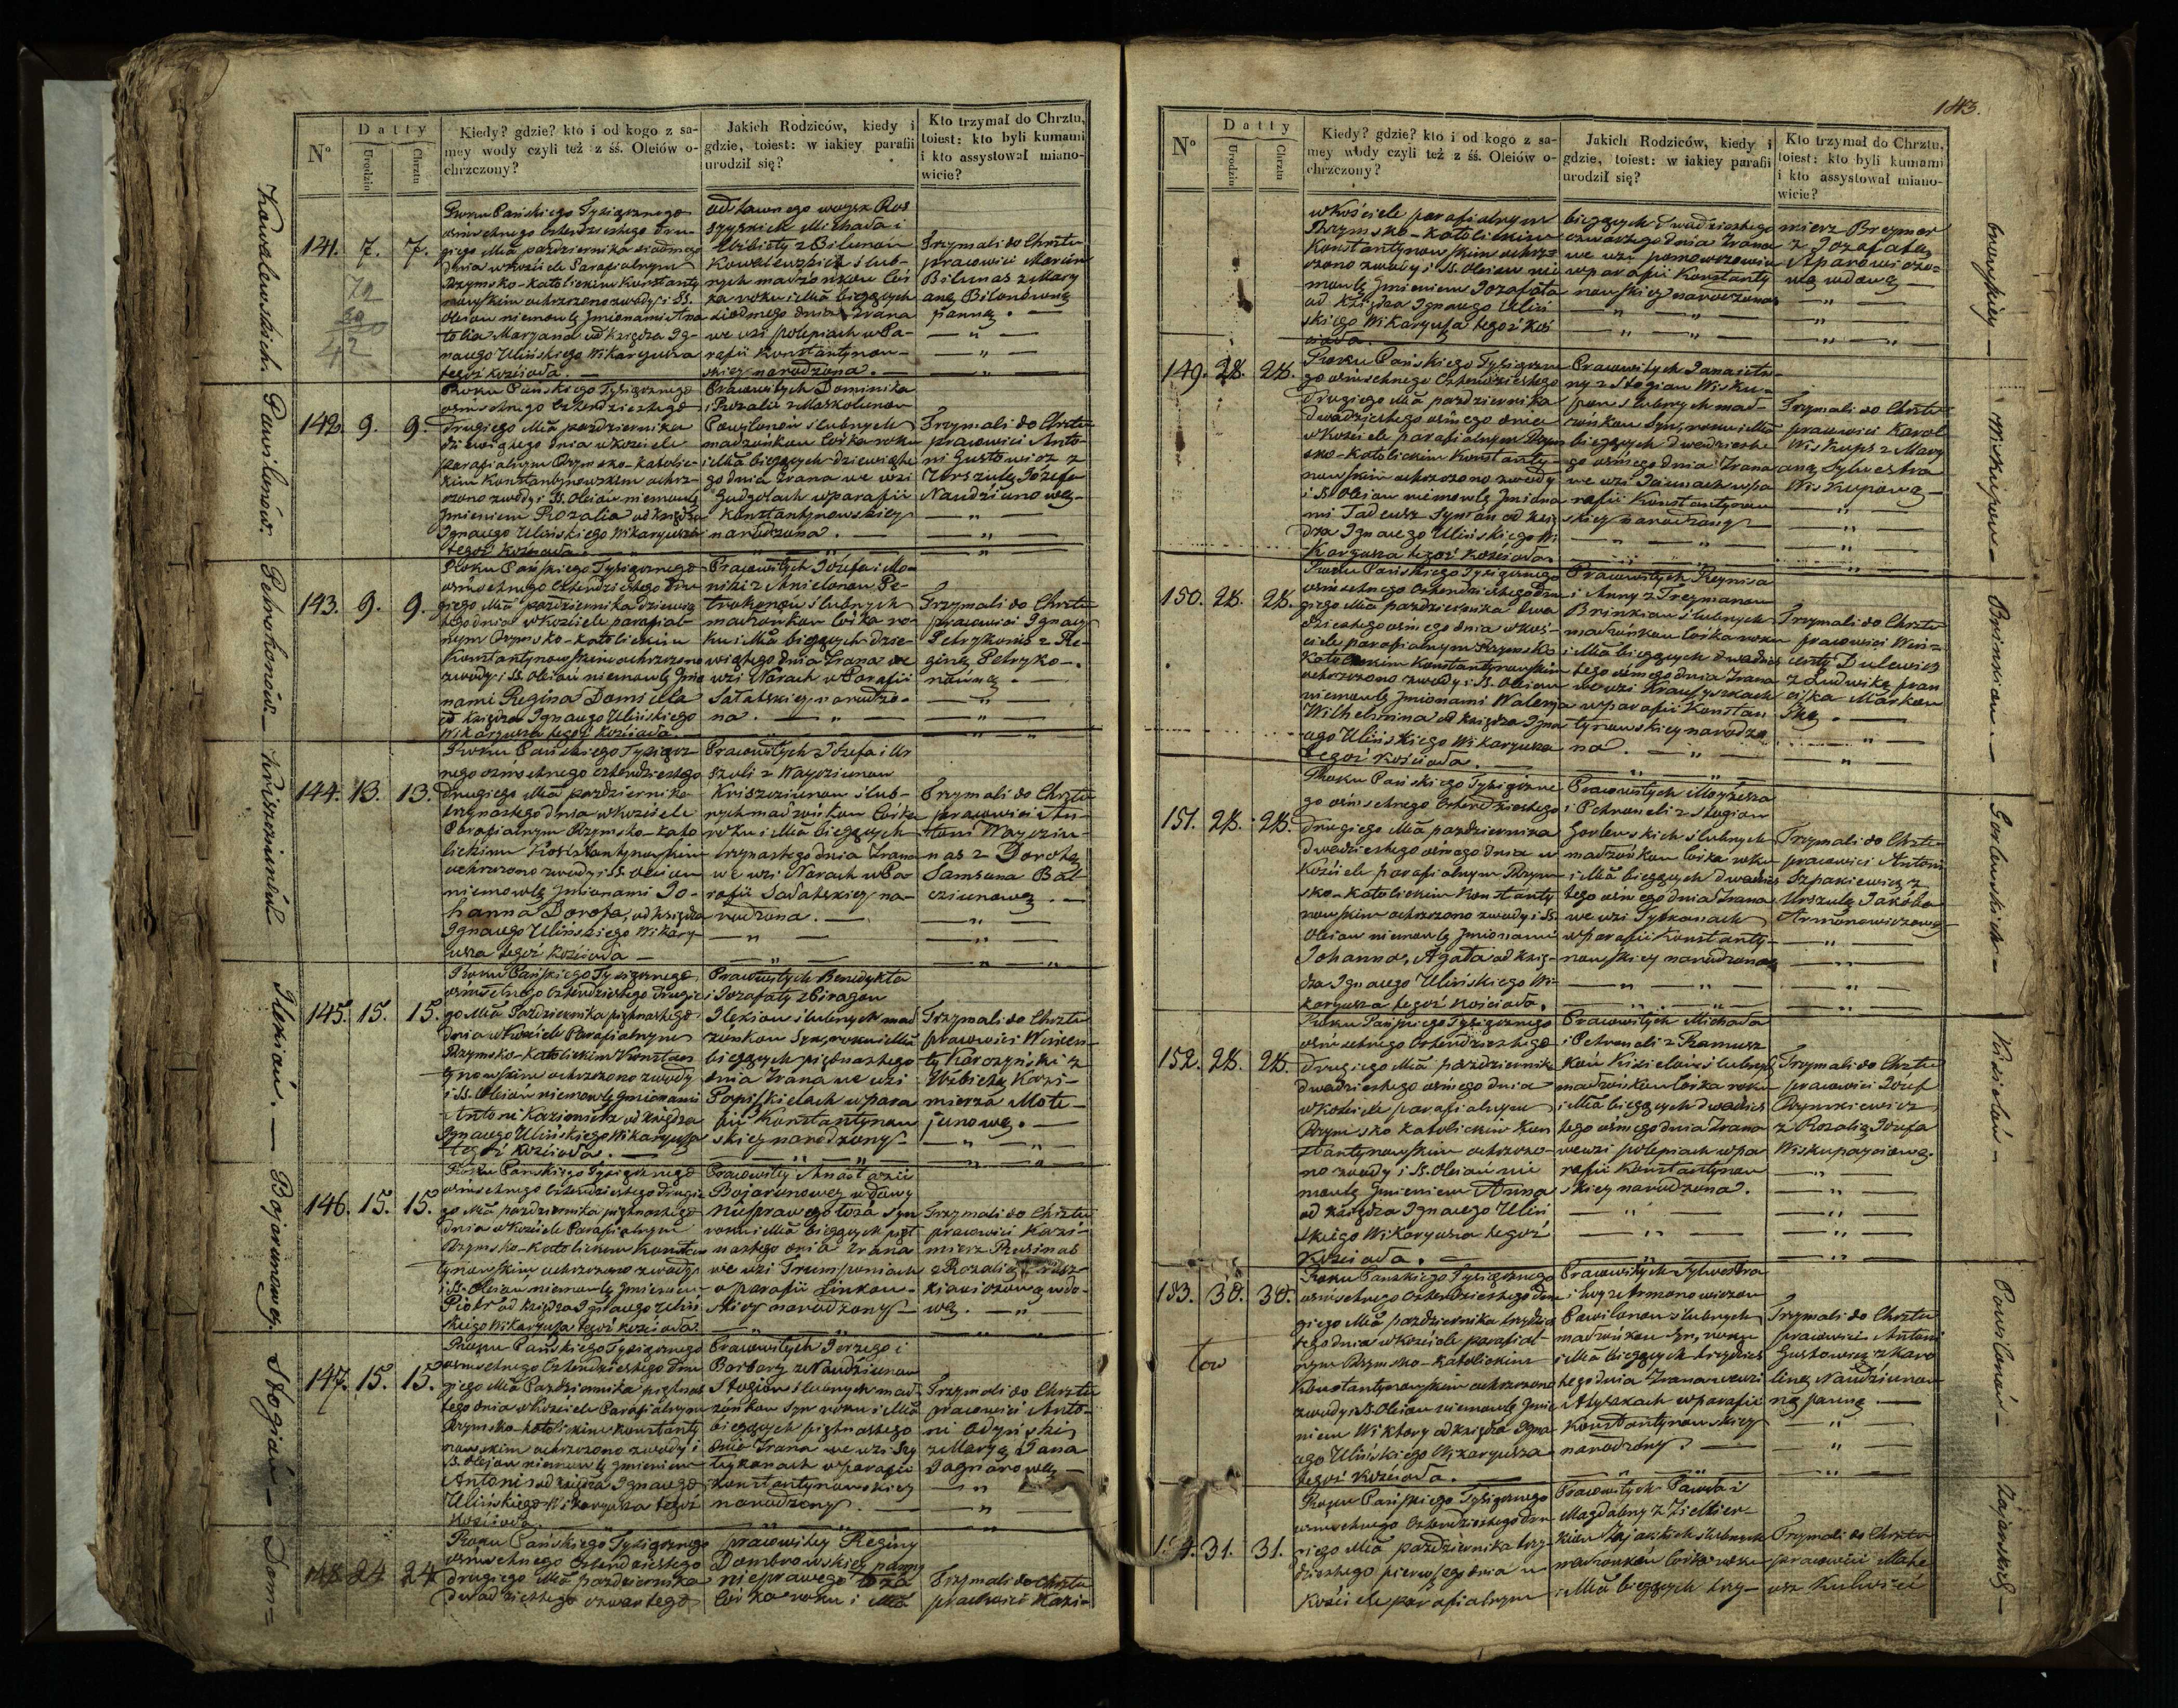 Nº
Datty
Urodzin
Chrztu
Kiedy? gdzie? kto i od kogo z sa-
mey wody czyli też z śś. Oleiów o-
chrzczony?
Jakich Rodziców, kiedy i
gdzie, toiest: w iakiey parafii
urodził się?
Kto trzymał do Chrztu,
toiest: kto byli kumami
i kto assystował miano-
wicie?
Kowalewskich
141. 7. 7.
Roku Pańskiego Tysiącznego
ośmsetnego Czterdziestego Dru-
giego Mca października siódmego
dnia w Kościele Parafialnym
Rzymsko-Katolickim Konstanty
nowskim ochrzczono z wody i SS.
Oleiow niemowlę Jmionami Ana
tolia Maryana od księdza Ig-
nacego Ulińskiego Wikaryusza
tegoż kościoła. —
szyyskich Michała i
Elżbiety z Bilunow
Kowalewskich ślub-
nych małżonkow Cór
ka roku i Mca bieżących
siodmego dnia Zrana
we wsi polepiach w Pa-
rafii Konstantynow-
skiey narodzona. —
Trzymali do Chrztu
pracowici Marcin
Bilunas z Mary
anną Bilunówną
panną. —
Pawilonów.
142. 9. 9.
Roku Pańskiego Tysiącznego
ośmsetnego Czterdziestego
Drugiego Mca października
dziewiątego dnia w kościele
parafialnym Rzymsko-Katolic-
kim Konstantynowskim ochrz-
czono z wody i SS. Oleiow niemowlę
Jmieniem Rozalia od księdza
Ignacego Ulińskiego Wikaryusza
tegoż kościoła —
Pracowitych Dominika
i Rozalii z Moskolunow
Pawilonow ślubnych
małżonkow Córka roku
i Mca bieżących dziewiąte
go dnia Zrana we wsi
Gudgołach w parafii
Konstantynowskiey
narodzona. —
Trzymali do Chrztu
pracowici Anto-
ni Gustowicz z
Urszulą Józefa
Naudżiunową —
Petrokonów. —
143. 9. 9.
Roku Pańskiego Tysiącznego
ośmsetnego Czterdziestego Dru
giego Mca października dziewią
tego dnia w kościele parafial-
nym Rzymsko-Katolickim
Konstantynowskim ochrzczono
z wody i SS. Oleiów niemowlę Jmio
nami Regina Domicella
od księdza Ignacego Ulińskiego
Wikaryusza tegoż kościoła —
Pracowitych Józefa i Mo-
niki z Anielonow Pe-
trokonow ślubnych
małżonkow Córka ro-
ku i Mca bieżących dzie-
wiątego dnia Zrana we
wsi Narach w Parafii
Sałatskiey narodzo-
na. —
Trzymali do Chrztu
pracowici Ignacy
Petrykonis z Re-
giną Petryko-
nowną. —
Kriszcziunów
144. 13. 13.
Roku Pańskiego Tysiącz-
nego ośmsetnego czterdziestego
drugiego Mca października
trzynastego dnia w Kościele
Parafialnym Rzymsko-Kato
lickim Konstantynowskim
ochrzczono z wody i SS. Oleiow
niemowlę Jmionami Jo-
hanna Dorota, od księdza
Ignacego Ulińskiego Wikary-
usza tegoż kościoła —
Pracowitych Józefa i Ur
szuli z Wayciunow
Kriszcziunow ślub-
nych małżonkow Córka
roku i Mca bieżących
trzynastego dnia Zrana
we wsi Narach w Pa
rafii Sałatskiey na-
rodzona. —
Trzymali do Chrztu
pracowici An-
toni Wayciu-
nas z Dorotą
Samsona Bal-
cziunową. —
Ilexiów. —
145. 15. 15.
Roku Pańskiego Tysiącznego
ośmsetnego Czterdziestego drugie
go Mca Października piętnastego
dnia w Kościele Parafialnym
Rzymsko-Katolickim Konstan
tynowskim ochrzczono z wody
i SS. Oleiów niemowlę Jmionami
Antoni Kazimierz od księdza
Ignacego Ulińskiego Wikaryusza
tegoż kościoła. —
Pracowitych Benedykta
i Jozafaty z Biragow
Ilexiow ślubnych mał
żonkow Syn, roku i Mca
bieżących piętnastego
dnia Zrana we wsi
Popiszkielach w para
fii Konstantynow
skiey narodzony —
Trzymali do Chrztu
pracowici Wincen-
ty Karczyński z
Elżbietą Kazi-
mierza Mote-
junową. —
Bojarunowey.
146. 15. 15.
Roku Pańskiego Tysiącznego
ośmsetnego Czterdziestego drugie
go Mca października piętnastego
dnia w Kościele Parafialnym
Rzymsko-Katolickim Konstan
tynowskim ochrzczono z wody
i SS. Oleiów niemowlę Jmieniem
Piotr od księdza Ignacego Uliń
skiego Wikaryusza tegoż kościoła.
Pracowitey Anastazii
Bojarunowey wdowy
nieprawego łoża syn
roku i Mca bieżących pięt
nastego dnia Zrana
we wsi Trumponiach
w parafii Linkow-
skiey narodzony —
Trzymali do Chrztu
pracowici Kazi-
mierz Rusinas
z Rozalią
kiewiczową wdo-
wą. —
Stogiów —
147. 15. 15.
Roku Pańskiego Tysiącznego
ośmsetnego Czterdziestego Dru
giego Mca Października piętnas
tego dnia w Kościele Parafialnym
Rzymsko-Katolickim Konstanty
nowskim ochrzczono z wody i
SS. Oleiow niemowlę Jmieniem
Antoni od księdza Ignacego
Ulińskiego Wikaryusza tegoż
Kościoła
Pracowitych Jerzego i
Barbary z Naudżiunow
Stogiow ślubnych mał-
żonkow Syn roku i Mca
bieżących piętnastego
dnia Zrana we wsi Szy
tykanach w parafii
Konstantynowskiey
narodzony. —
Trzymali do Chrztu
pracowici Anto-
ni Odyński
z Maryą Jana
Jagnarową —
Dom-
148. 24 24
Roku Pańskiego Tysiącznego
ośmsetnego Czterdziestego
drugiego Mca października
dwadziestego czwartego
pracowitey Reginy
Dombrowskiey panny
nieprawego łoża
Córka roku i Mca
Trzymali do Chrztu
pracowici Kazi-
143.
Nº
Datty
Urodzin
Chrztu
Kiedy? gdzie? kto i od kogo z sa-
mey wody czyli też z śś. Oleiów o-
chrzczony?
Jakich Rodziców, kiedy i
gdzie, toiest: w iakiey parafii
urodził się?
Kto trzymał do Chrztu,
toiest: kto byli kumami
i kto assystował miano-
wicie?
browskiey —
w Kościele parafialnym
Rzymsko-Katolickim
Konstantynowskim ochrz-
czono z wody i SS. Oleiow nie
mowlę Jmieniem Jozafata
od Księdza Ignacego Uliń
skiego Wikaryusza tegoż koś
cioła. —
bieżących dwadziestego
czwartego dnia Zrana
we wsi
w parafii Konstanty
nowskiey narodzona
mierz Breymer
z Jozafatą
Szparowiczo-
wą wdową —
Wiskupow —
149. 28. 28.
Roku Pańskiego Tysiączne
go ośmsetnego Czterdziestego
Drugiego Mca października
dwadziestego ośmego dnia
w Kościele parafialnym Rzym
sko-Katolickim Konstanty-
nowskim ochrzczono z wody
i SS. Oleiow niemowlę Jmiona
mi Tadeusz Symon od księ
dza Ignacego Ulińskiego Wi
karyusza tegoż kościoła.
Pracowitych Jana i An-
ny z Stogiow Wisku-
pow ślubnych mał-
żonkow Syn, roku i Mca
bieżących dwadzieste
go ośmego dnia Zrana
we wsi Jaunach w pa
rafii Konstantynow
skiey narodzony —
Trzymali do Chrztu
pracowici Karol
Wiskups z Mary
anną Sylwestra
Wiskupową —
Brinkiow. —
150. 28. 28.
Roku Pańskiego Tysiącznego
ośmsetnego Czterdziestego Dru
giego Mca października dwa
dziestego ośmego dnia w koś-
ciele parafialnym Rzymsko
Katolickim Konstantynowskim
ochrzczono z wody i SS. Oleiow
niemowlę Jmionami Walerya
Wilhelmina od księdza Igna
cego Ulińskiego Wikaryusza
tegoż Kościoła. —
Pracowitych Reynisa
i Anny z Treymanow
Brinkiow ślubnych
małżonkow Córka roku
i Mca bieżących dwadzies
tego ośmego dnia Zrana
we wsi
w parafii Konstan
tynowskiey narodzo
na. —
Trzymali do Chrztu
pracowici Win-
centy Dulewicz
z Ludwiką fran
ciszka Markow
ską. —
Gorlewskich —
151. 28. 28.
Roku Pańskiego Tysiączne
go ośmsetnego Czterdziestego
Drugiego Mca października
dwadziestego ośmego dnia w
Kościele parafialnym Rzym
sko-Katolickim Konstanty
nowskim ochrzczono z wody i SS.
Oleiow niemowlę Jmionami
Johanna, Agata od księ-
dza Ignacego Ulińskiego Wi
karyusza tegoż Kościoła.
Pracowitych Moyżesza
i Petroneli z Stogiow
Gorlewskich ślubnych
małżonkow Córka roku
i Mca bieżących dwadzies
tego ośmego dnia Zrana
we wsi Sytkonach
w parafii Konstanty-
nowskiey narodzona
Trzymali do Chrztu
pracowici Antoni
Szpakiewicz z
Urszulą Jakóba
Armonowiczową
Kisielów —
152. 28. 28.
Roku Pańskiego Tysiącznego
ośmsetnego Czterdziestego
Drugiego Mca października
dwadziestego ośmego dnia
w kościele parafialnym
Rzymsko Katolickim Kon
stantynowskim ochrzczo-
no z wody i SS. Oleiów nie
mowlę Jmieniem Anna
od księdza Ignacego Uliń
skiego Wikaryusza tegoż
Kościoła. —
Pracowitych Michała
i Petroneli z Ramusz
kow Kisielów ślubnych
małżonkow Córka roku
i Mca bieżących dwadzies
tego ośmego dnia Zrana
we wsi polepiach w pa
rafii Konstantynow
skiey narodzona.
Trzymali do Chrztu
pracowici Józef
Rymkiewicz
z Rozalią Józefa
Wiskupayciową.
Pawilonów —
153. 30. 30.
tow
Roku Pańskiego Tysiącznego
ośmsetnego Czterdziestego Dru
giego Mca października trzydzies
tego dnia w kościele parafial-
nym Rzymsko-Katolickim
Konstantynowskim ochrzczono
z wody i SS. Oleiow niemowlę Jmie
niem Wiktory od księdza Igna
cego Ulińskiego Wikaryusza
tegoż Kościoła. —
Pracowitych Sylwestra
i Ewy z Armonowiczow
Pawilonow ślubnych
małżonkow Syn, roku
i Mca bieżących trzydzies
tego dnia Zrana we wsi
w parafii
Konstantynowskiey
narodzony. —
Trzymali do Chrztu
pracowici Antoni
Gustowicz z Karo
liną Naudżiunow
ną panną —
Zajanskich —
154. 31. 31.
Roku Pańskiego Tysiącznego
ośmsetnego Czterdziestego Dru
giego Mca października trzy-
dziestego pierwszego dnia w
Kościele parafialnym
Pracowitych Pawła i
Magdaleny z Ziemien-
kiow Zajanskich ślubnych
małżonków Córka roku
i Mca bieżących trzy-
Trzymali do Chrztu
pracowici Mate-
usz Kulwieć